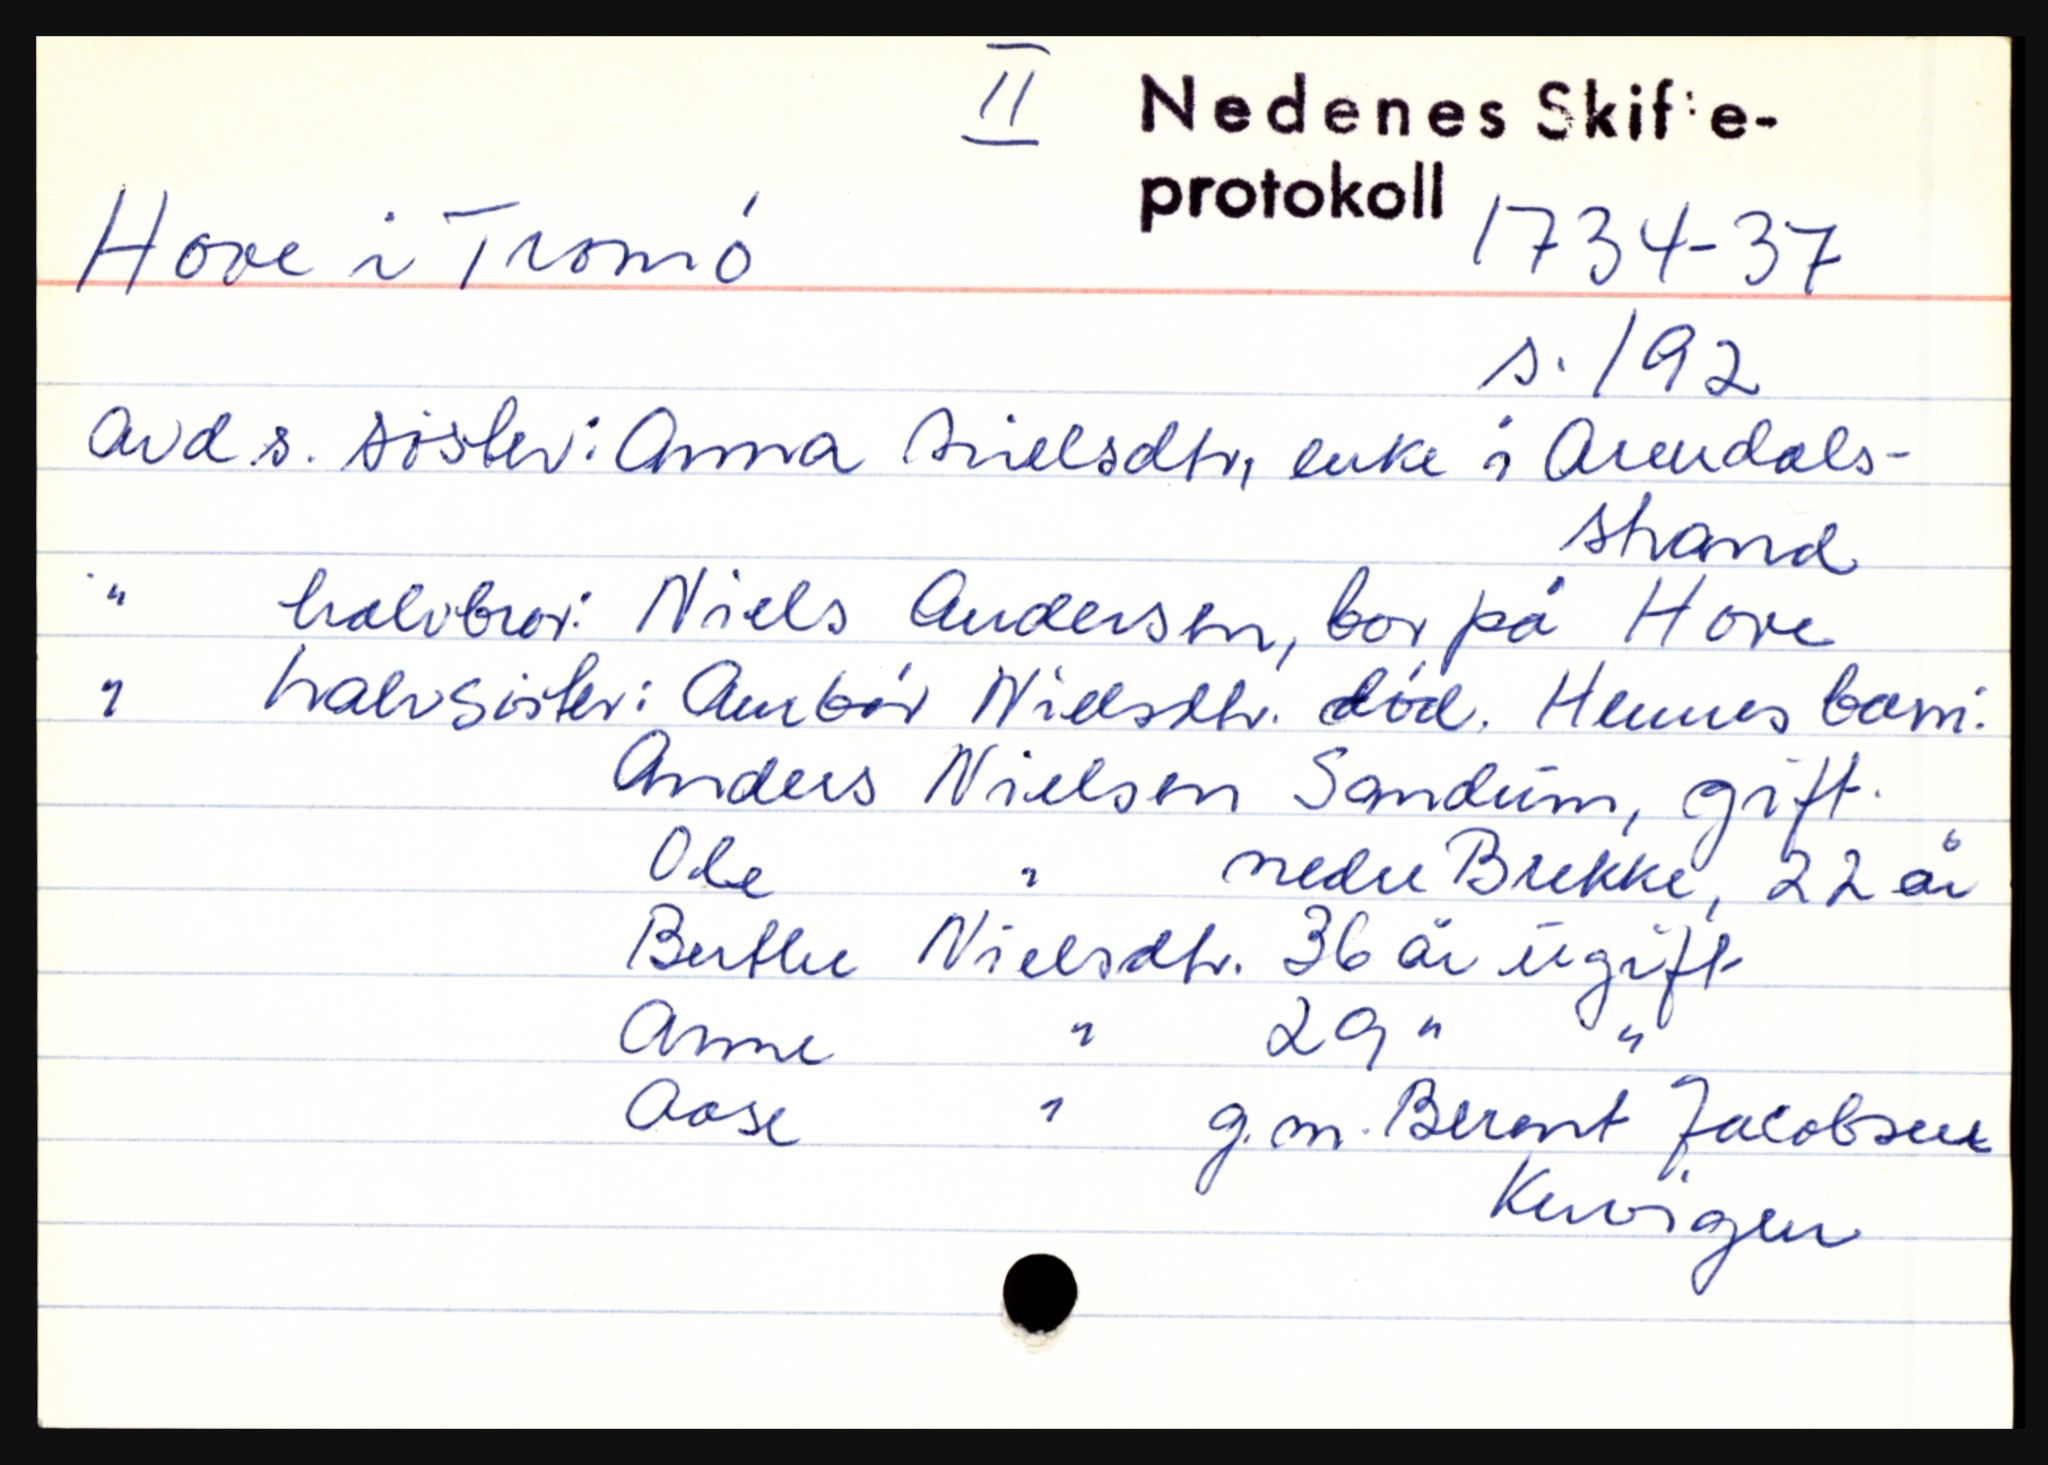 II Nedenes Skifte-
protokoll
Hove i Tromö 1734-37
s. 192
avd.s. söster: Anna Nielsdtr, enke i Arendals-
strand
" halvbror: Niels Andersen, bor på Hove
" halvsöster: Anbör Nielsdtr. död. Hennes barn:
Anders Nielsen Sandum, gift.
Ole " nedre Brekke, 22 år
Berthe Nielsdtr. 36 år ugift
Anne " 29 " "
Aase " g.m. Berent Jacobsen
Kervigen